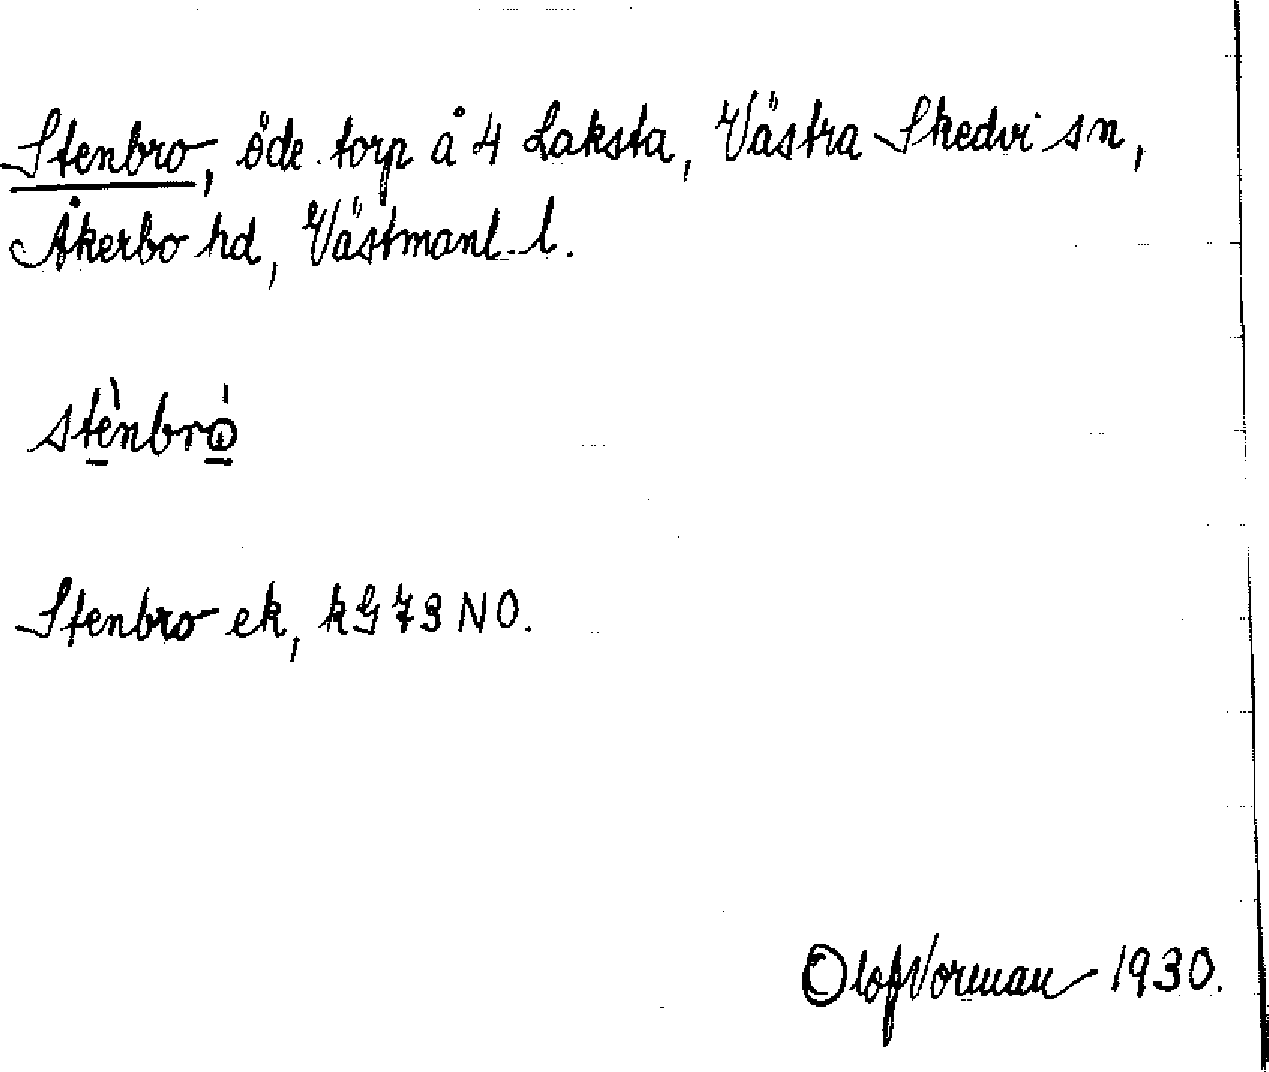 Stenbro, öde torp å 4 Laksta, Västra Skedvi sn,
Åkerbo hd, Västmanl. l.
stènbró
Stenbro ek, kG 73 NO.
Olof Vorman 1930.